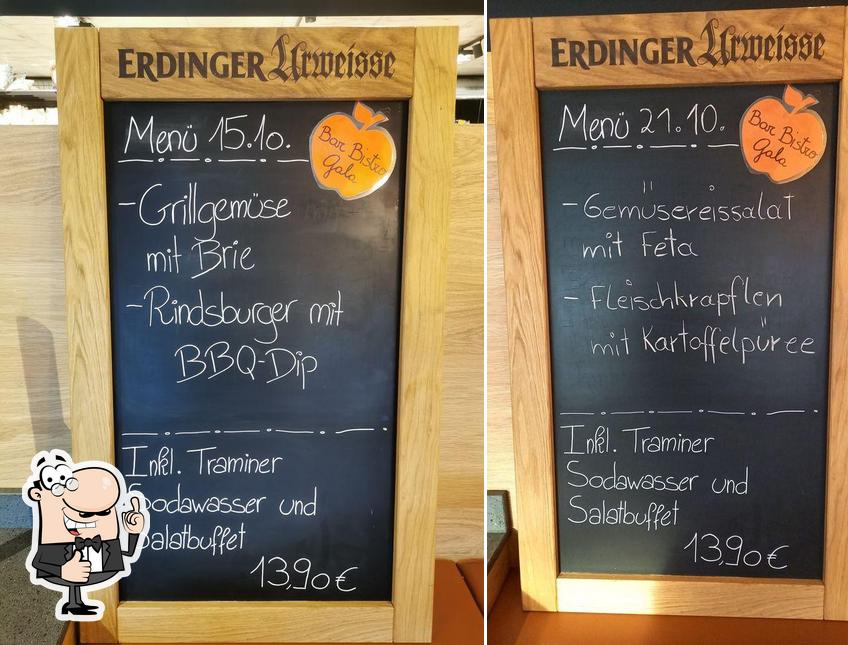 ERDINGER Urweisse
Menü 15.10.
Bar Bistro
Gala
- Grillgemüse
mit Brie
- Rindsburger mit
BBQ-Dip
Inkl. Traminer
Sodawasser und
Salatbuffet
13,90€
ERDINGER Urweisse
Menü 21.10.
Bar Bistro
Gala
- Gemüsereissalat
mit Feta
- Fleischkrapflen
mit Kartoffelpüree
Inkl. Traminer
Sodawasser und
Salatbuffet
13,90€